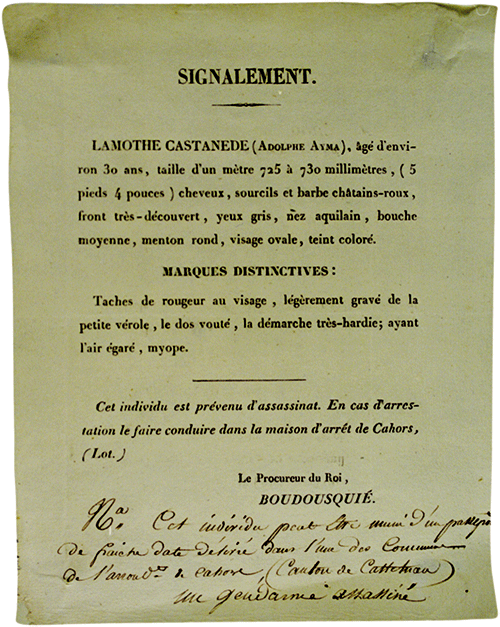 SIGNALEMENT.
LAMOTHE CASTANEDE (ADOLPHE AYMA), âgé d'envi-
ron 30 ans, taille d'un mètre 725 à 730 millimètres, ( 5
pieds 4 pouces ) cheveux, sourcils et barbe châtains-roux,
front très-découvert, yeux gris, nez aquilain, bouche
moyenne, menton rond, visage ovale, teint coloré.
MARQUES DISTINCTIVES :
Taches de rougeur au visage, légèrement gravé de la
petite vérole, le dos vouté, la démarche très-hardie; ayant
l'air égaré, myope.
Cet individu est prévenu d'assassinat. En cas d'arres-
tation le faire conduire dans la maison d'arrêt de Cahors,
(Lot.)
Le Procureur du Roi,
BOUDOUSQUIÉ.
Na. Cet individu peut être muni d'un
de fraiche date délivré dans l'une des Communes
de de Cahors, (Canton de
un gendarme assassiné